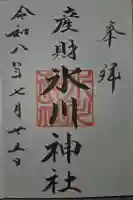 奉拝
産財氷川神社
令和八年七月廿五日